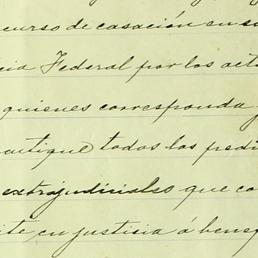 curso de casación en su
cia Federal por los actos
quienes corresponda
actique todos los pedi
extrajudiciales que co
ite, en justicia á benef